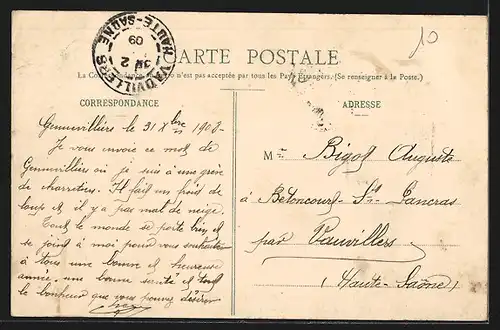 CARTE POSTALE
La Correspondance n'est pas acceptée par tous les Pays Étrangers. (Se renseigner à la Poste.)
VAUVILLERS
HAUTE-SAONE
2
09
10
CORRESPONDANCE
Gennevilliers le 31 Xbre 1908.
Je vous envoie ce mot de
Gennevilliers où je suis à une grève
de charretiers. Il fait un froid de
loup et il y a pas mal de neige.
Tout le monde se porte bien et
se joint à moi pour vous souhaiter
à tous une bonne et heureuse
année, une bonne santé et tout
le bonheur que vous pouvez désirer
ADRESSE
Mr Bigot Auguste
à Betoncourt-St-Pancras
par Vauvillers
(Haute-Saône)